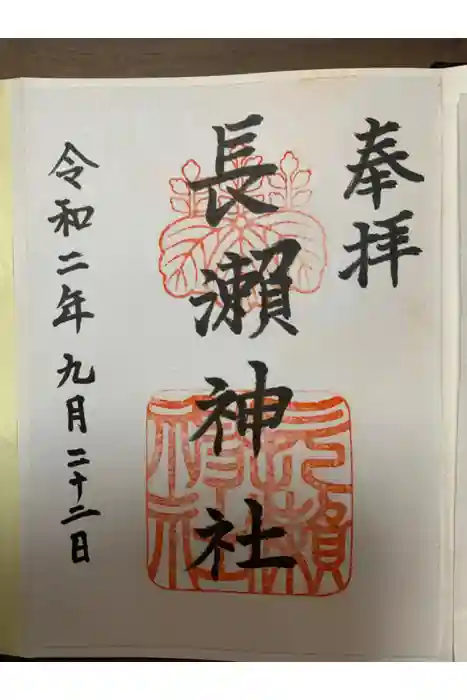 奉拝
長瀬神社
令和二年九月二十二日